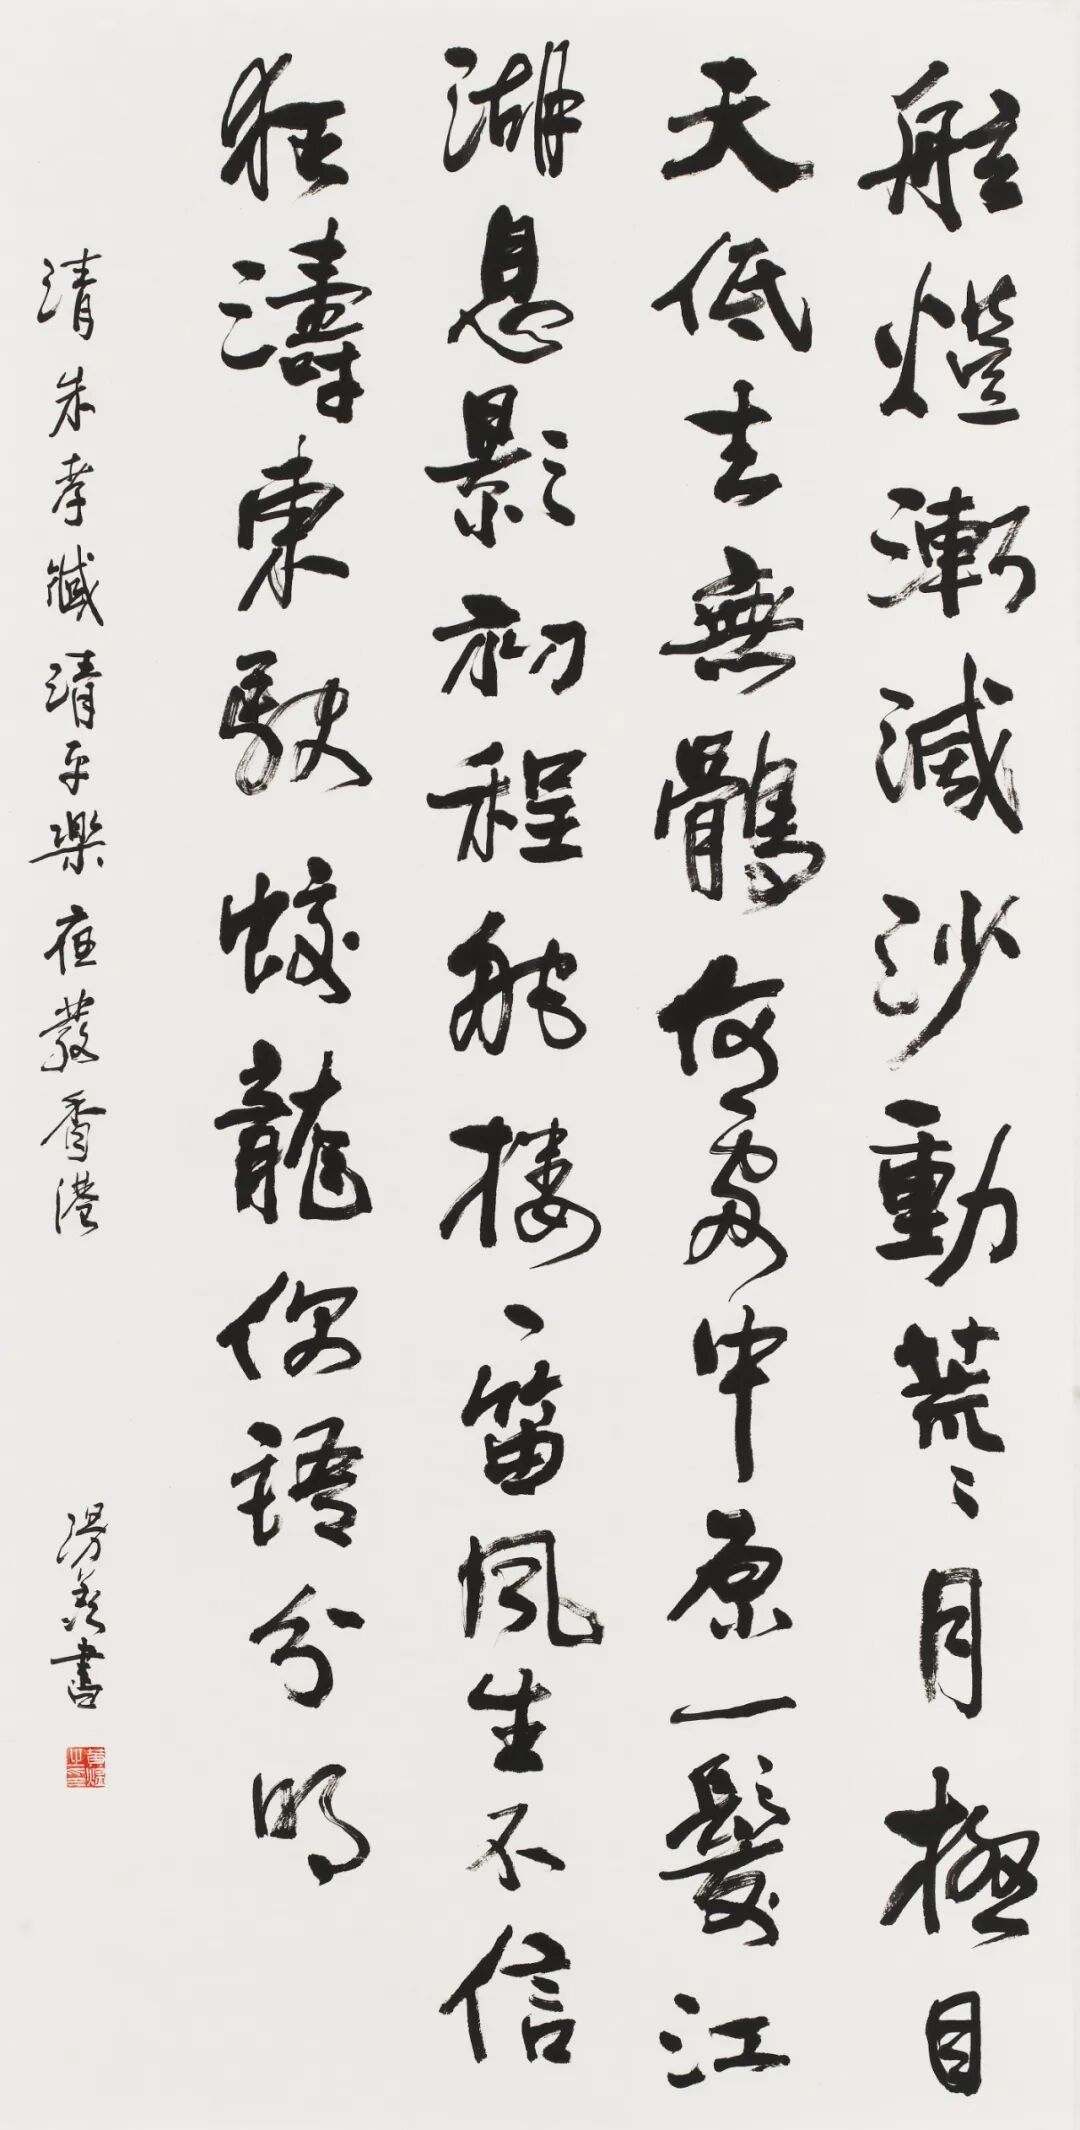 舷燈漸滅沙動荒〻月極目
天低去無鶻何處中原一髮江
湖息影初程舵樓一笛風生不信
狂濤東駛蛟龍偶語分明
清朱孝臧清平樂夜發香港
書